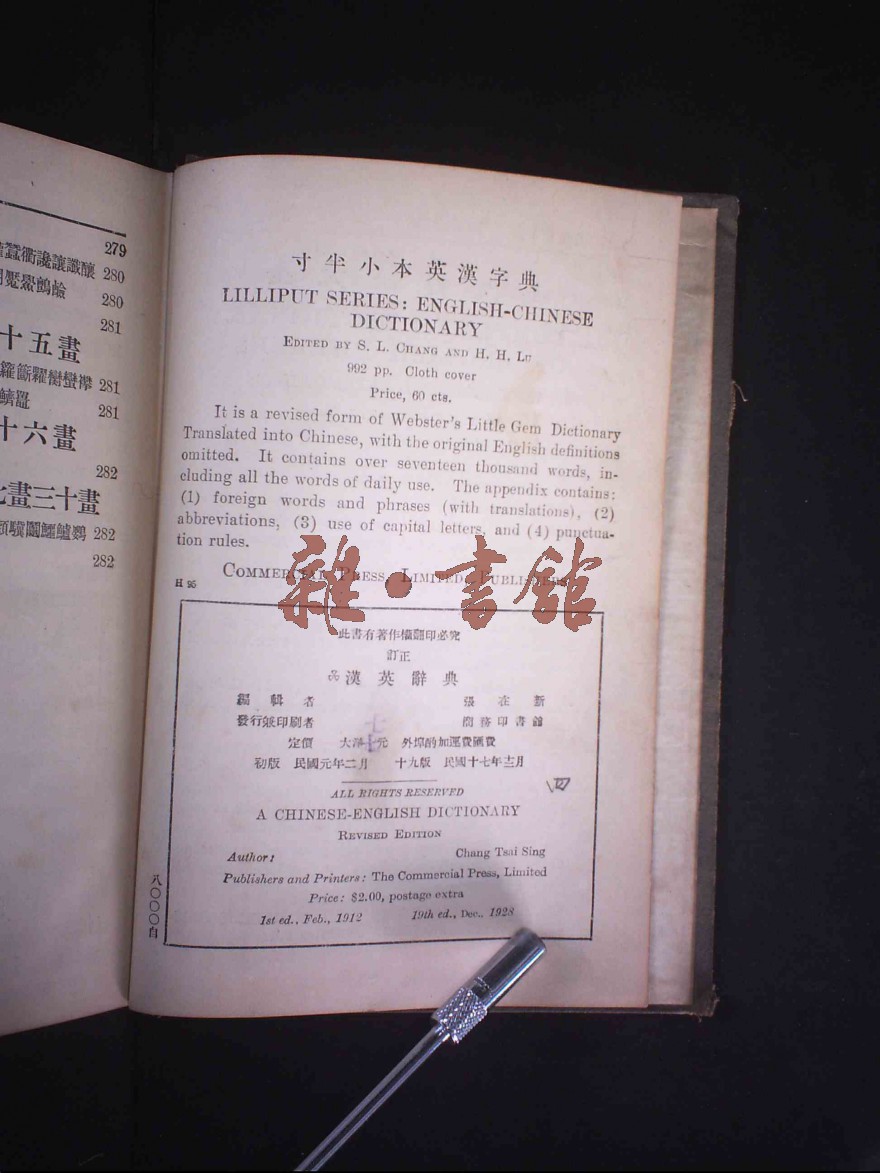 279
蠶衢讒讓讖釀 280
280
281
十五畫
281
281
十六畫
282
畫三十畫
282
282
寸半小本英漢字典
LILLIPUT SERIES: ENGLISH-CHINESE
DICTIONARY
EDITED BY S. L. CHANG AND H. H. LU
992 pp. Cloth cover
Price, 60 cts.
It is a revised form of Webster's Little Gem Dictionary
Translated into Chinese, with the original English definitions
omitted. It contains over seventeen thousand words, in-
cluding all the words of daily use. The appendix contains:
(1) foreign words and phrases (with translations), (2)
abbreviations, (3) use of capital letters, and (4) punctua-
tion rules.
COMMERCIAL PRESS, LIMITED, PUBLISHERS
H 95
雜·書館
此書有著作權翻印必究
訂正
漢英辭典
編輯者 張在新
發行兼印刷者 商務印書館
定價 大洋元 外埠酌加運費匯費
初版 民國元年二月 十九版 民國十七年十二月
ALL RIGHTS RESERVED
A CHINESE-ENGLISH DICTIONARY
REVISED EDITION
Author: Chang Tsai Sing
Publishers and Printers: The Commercial Press, Limited
Price: $2.00, postage extra
1st ed., Feb., 1912 19th ed., Dec., 1928
八〇〇〇自